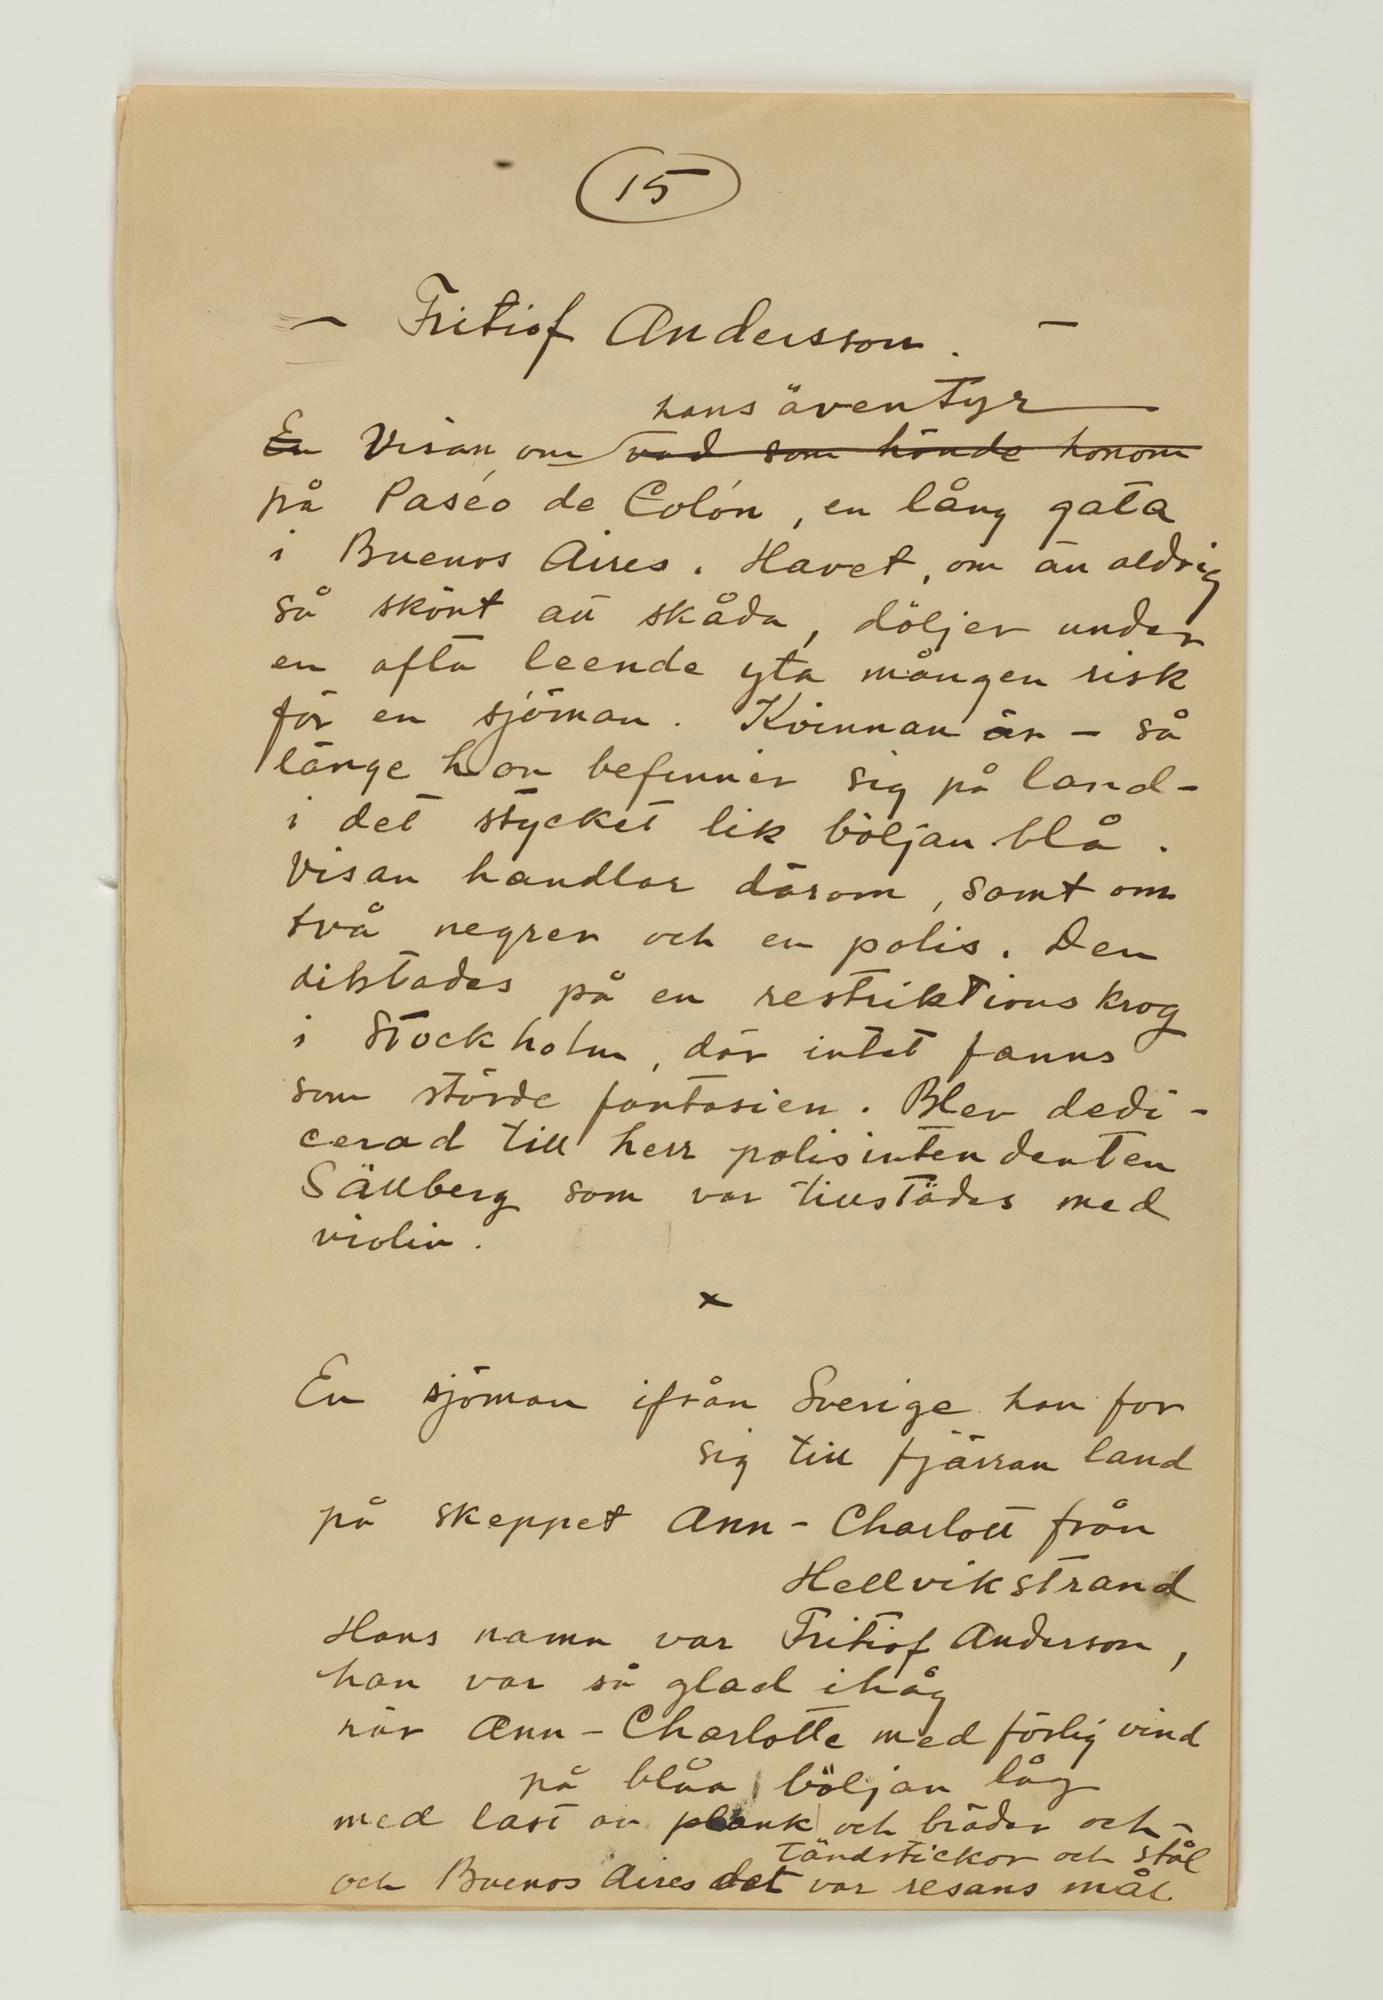 15
— Fritiof Andersson. —
hans äventyr
En Visan om vad som hände honom
på Paséo de Colón, en lång gata
i Buenos Aires. Havet, om än aldrig
så skönt att skåda, döljer under
en ofta leende yta mången risk
för en sjöman. Kvinnan är – så
länge hon befinner sig på land –
i det stycket lik böljan blå.
Visan handlar därom, samt om
två negrer och en polis. Den
diktades på en restriktionskrog
i Stockholm, där intet fanns
som störde fantasien. Blev dedi-
cerad till herr polisintendenten
Sällberg som var tillstädes med
violin.
x
En sjöman ifrån Sverige han for
sig till fjärran land
på skeppet Ann-Charlott från
Hellvikstrand
Hans namn var Fritiof Anderson,
han var så glad ihåg
när Ann-Charlotte med förlig vind
på blåa böljan låg
med last av plank och bräder och
tändstickor och stål
och Buenos Aires det var resans mål